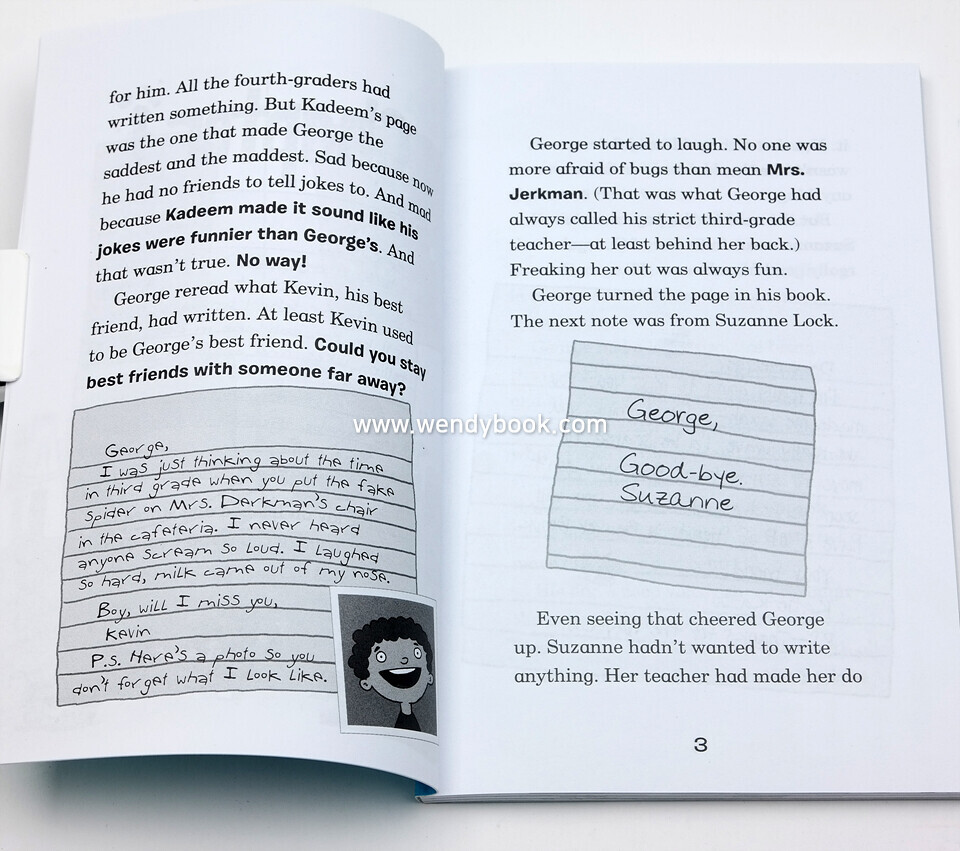 for him. All the fourth-graders had
written something. But Kadeem's page
was the one that made George the
saddest and the maddest. Sad because now
he had no friends to tell jokes to. And mad
because Kadeem made it sound like his
jokes were funnier than George's. And
that wasn't true. No way!
George reread what Kevin, his best
friend, had written. At least Kevin used
to be George's best friend. Could you stay
best friends with someone far away?
George,
I was just thinking about the time
in third grade when you put the fake
spider on Mrs. Derkman's chair
in the cafeteria. I never heard
anyone scream so loud. I laughed
so hard, milk came out of my nose.
Boy, will I miss you,
Kevin
P.s. Here's a photo so you
don't forget what I look like.
George started to laugh. No one was
more afraid of bugs than mean Mrs.
Jerkman. (That was what George had
always called his strict third-grade
teacher—at least behind her back.)
Freaking her out was always fun.
George turned the page in his book.
The next note was from Suzanne Lock.
George,
Good-bye.
Suzanne
Even seeing that cheered George
up. Suzanne hadn't wanted to write
anything. Her teacher had made her do
3
www.wendybook.com